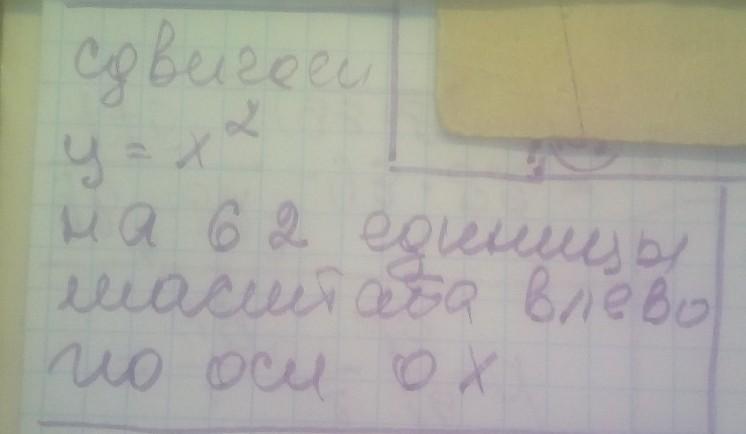 сдвигаем
y = x²
на 62 единицы
масштаба влево
по оси ох